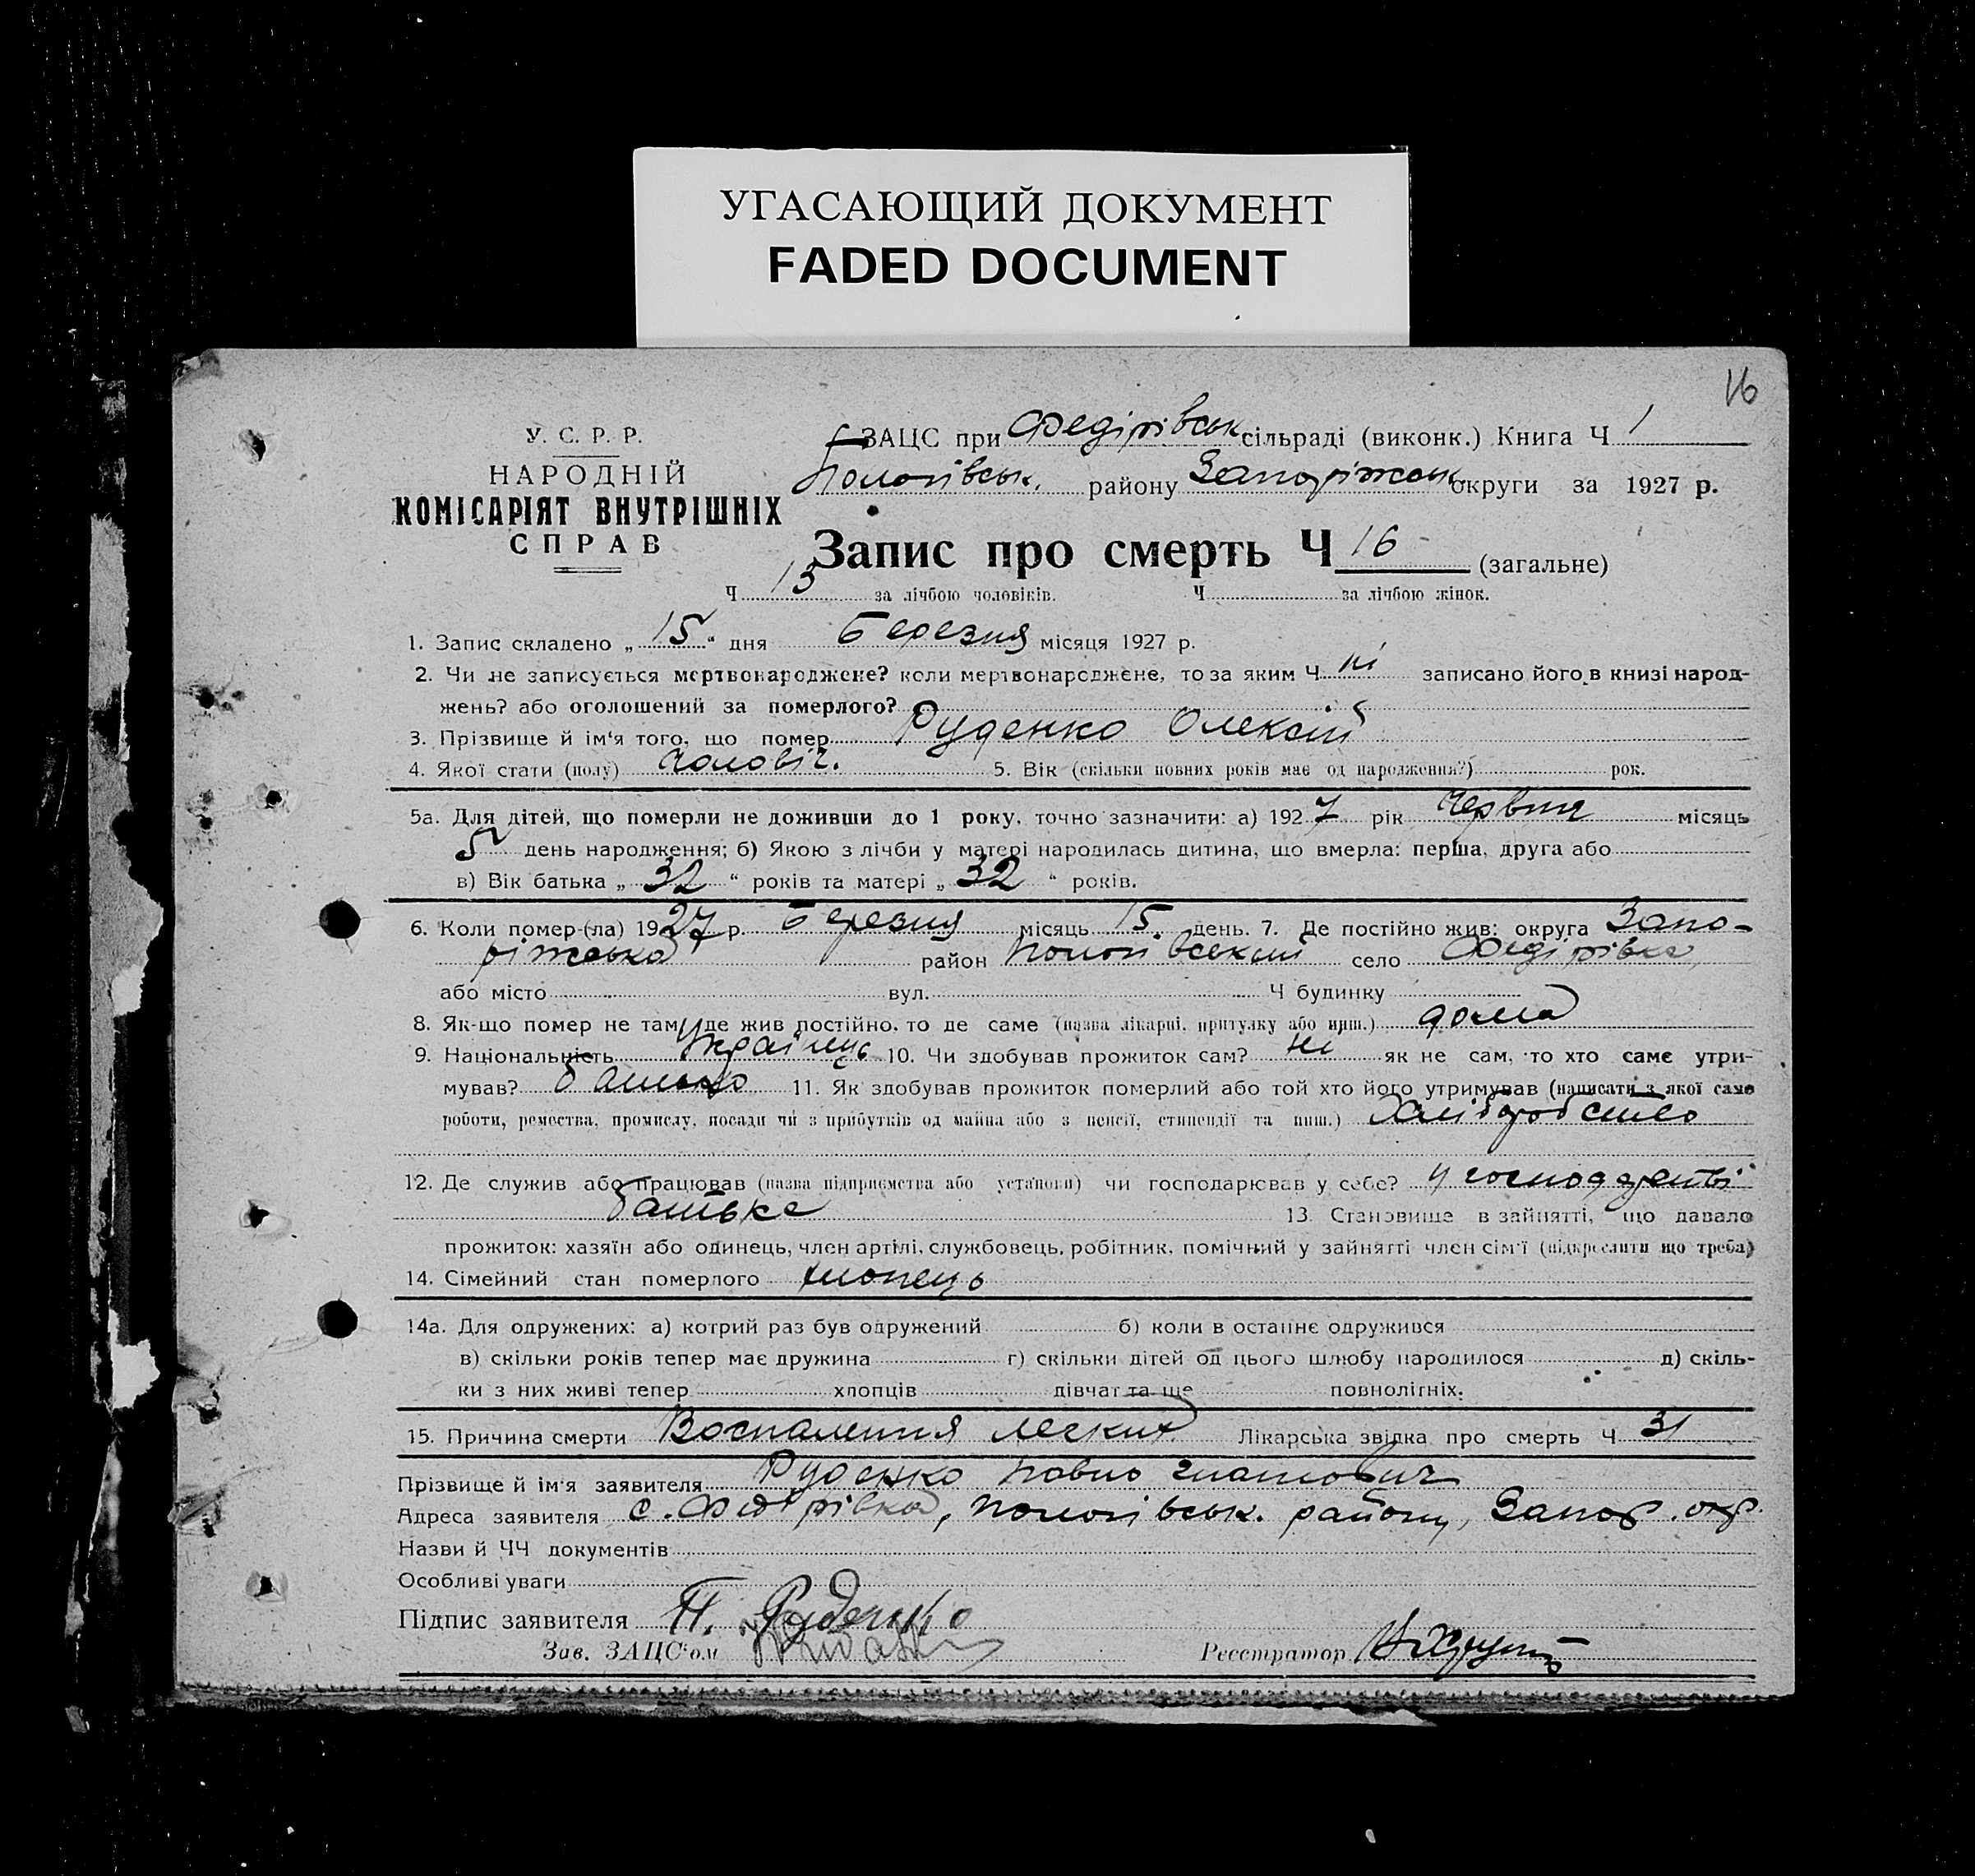 УГАСАЮЩИЙ ДОКУМЕНТ
FADED DOCUMENT
16
У. С. Р. Р.
НАРОДНІЙ
КОМІСАРІЯТ ВНУТРІШНІХ
СПРАВ
ЗАЦС при Федірівськ сільраді (виконк.) Книга Ч 1
Пологівськ. району Запоріжськ округи за 1927 р.
Запис про смерть Ч 16 (загальне)
Ч 13 за лічбою чоловіків. Ч за лічбою жінок.
1. Запис складено „ 15 “ дня Березня місяця 1927 р.
2. Чи не записується мертвонароджене? коли мертвонароджене, то за яким Ч ні записано його в книзі народ-
жень? або оголошений за померлого?
3. Прізвище й ім‘я того, що помер Руденко Олексій
4. Якої стати (полу) чоловіч. 5. Вік (скільки повних років має од народження?) рок.
5а. Для дітей, що померли не доживши до 1 року, точно зазначити: а) 1927 рік Червня місяць
5 день народження; б) Якою з лічби у матері народилась дитина, що вмерла: перша, друга або
в) Вік батька „ 32 “ років та матері „ 32 “ років.
6. Коли помер (ла) 1927 р. Березня місяць 15. день. 7. Де постійно жив: округа Запо-
ріжська район Пологівський село Федірівка
або місто вул. Ч будинку
8. Як-що помер не там, де жив постійно, то де саме (назва лікарні, притулку або инш.) дома
9. Національність Українець 10. Чи здобував прожиток сам? ні як не сам, то хто саме утри-
мував? батько 11. Як здобував прожиток померлий або той хто його утримував (написати з якої саме
роботи, ремества, промислу, посади чи з прибутків од майна або з пенсії, стипендії та инш.) Хліборобство
12. Де служив або працював (назва підприємства або установи) чи господарював у себе? у
батька 13. Становище в зайнятті, що давало
прожиток: хазяїн або одинець, член артілі, службовець, робітник, помічний у зайнятті член сім‘ї (підкреслити що треба)
14. Сімейний стан померлого хлопець
14а. Для одружених: а) котрий раз був одружений б) коли в останнє одружився
в) скільки років тепер має дружина г) скільки дітей од цього шлюбу народилося д) скіль-
ки з них живі тепер хлопців дівчат та ще повнолітніх.
15. Причина смерти Воспаления легких Лікарська звідка про смерть Ч 31
Прізвище й ім‘я заявителя Руденко Павло Гнатович
Адреса заявителя с. Федірівка, Пологівськ. району, Запор. окр.
Назви й ЧЧ документів
Особливі уваги
Підпис заявителя П. Руденко
Зав. ЗАЦС‘ом Реєстратор